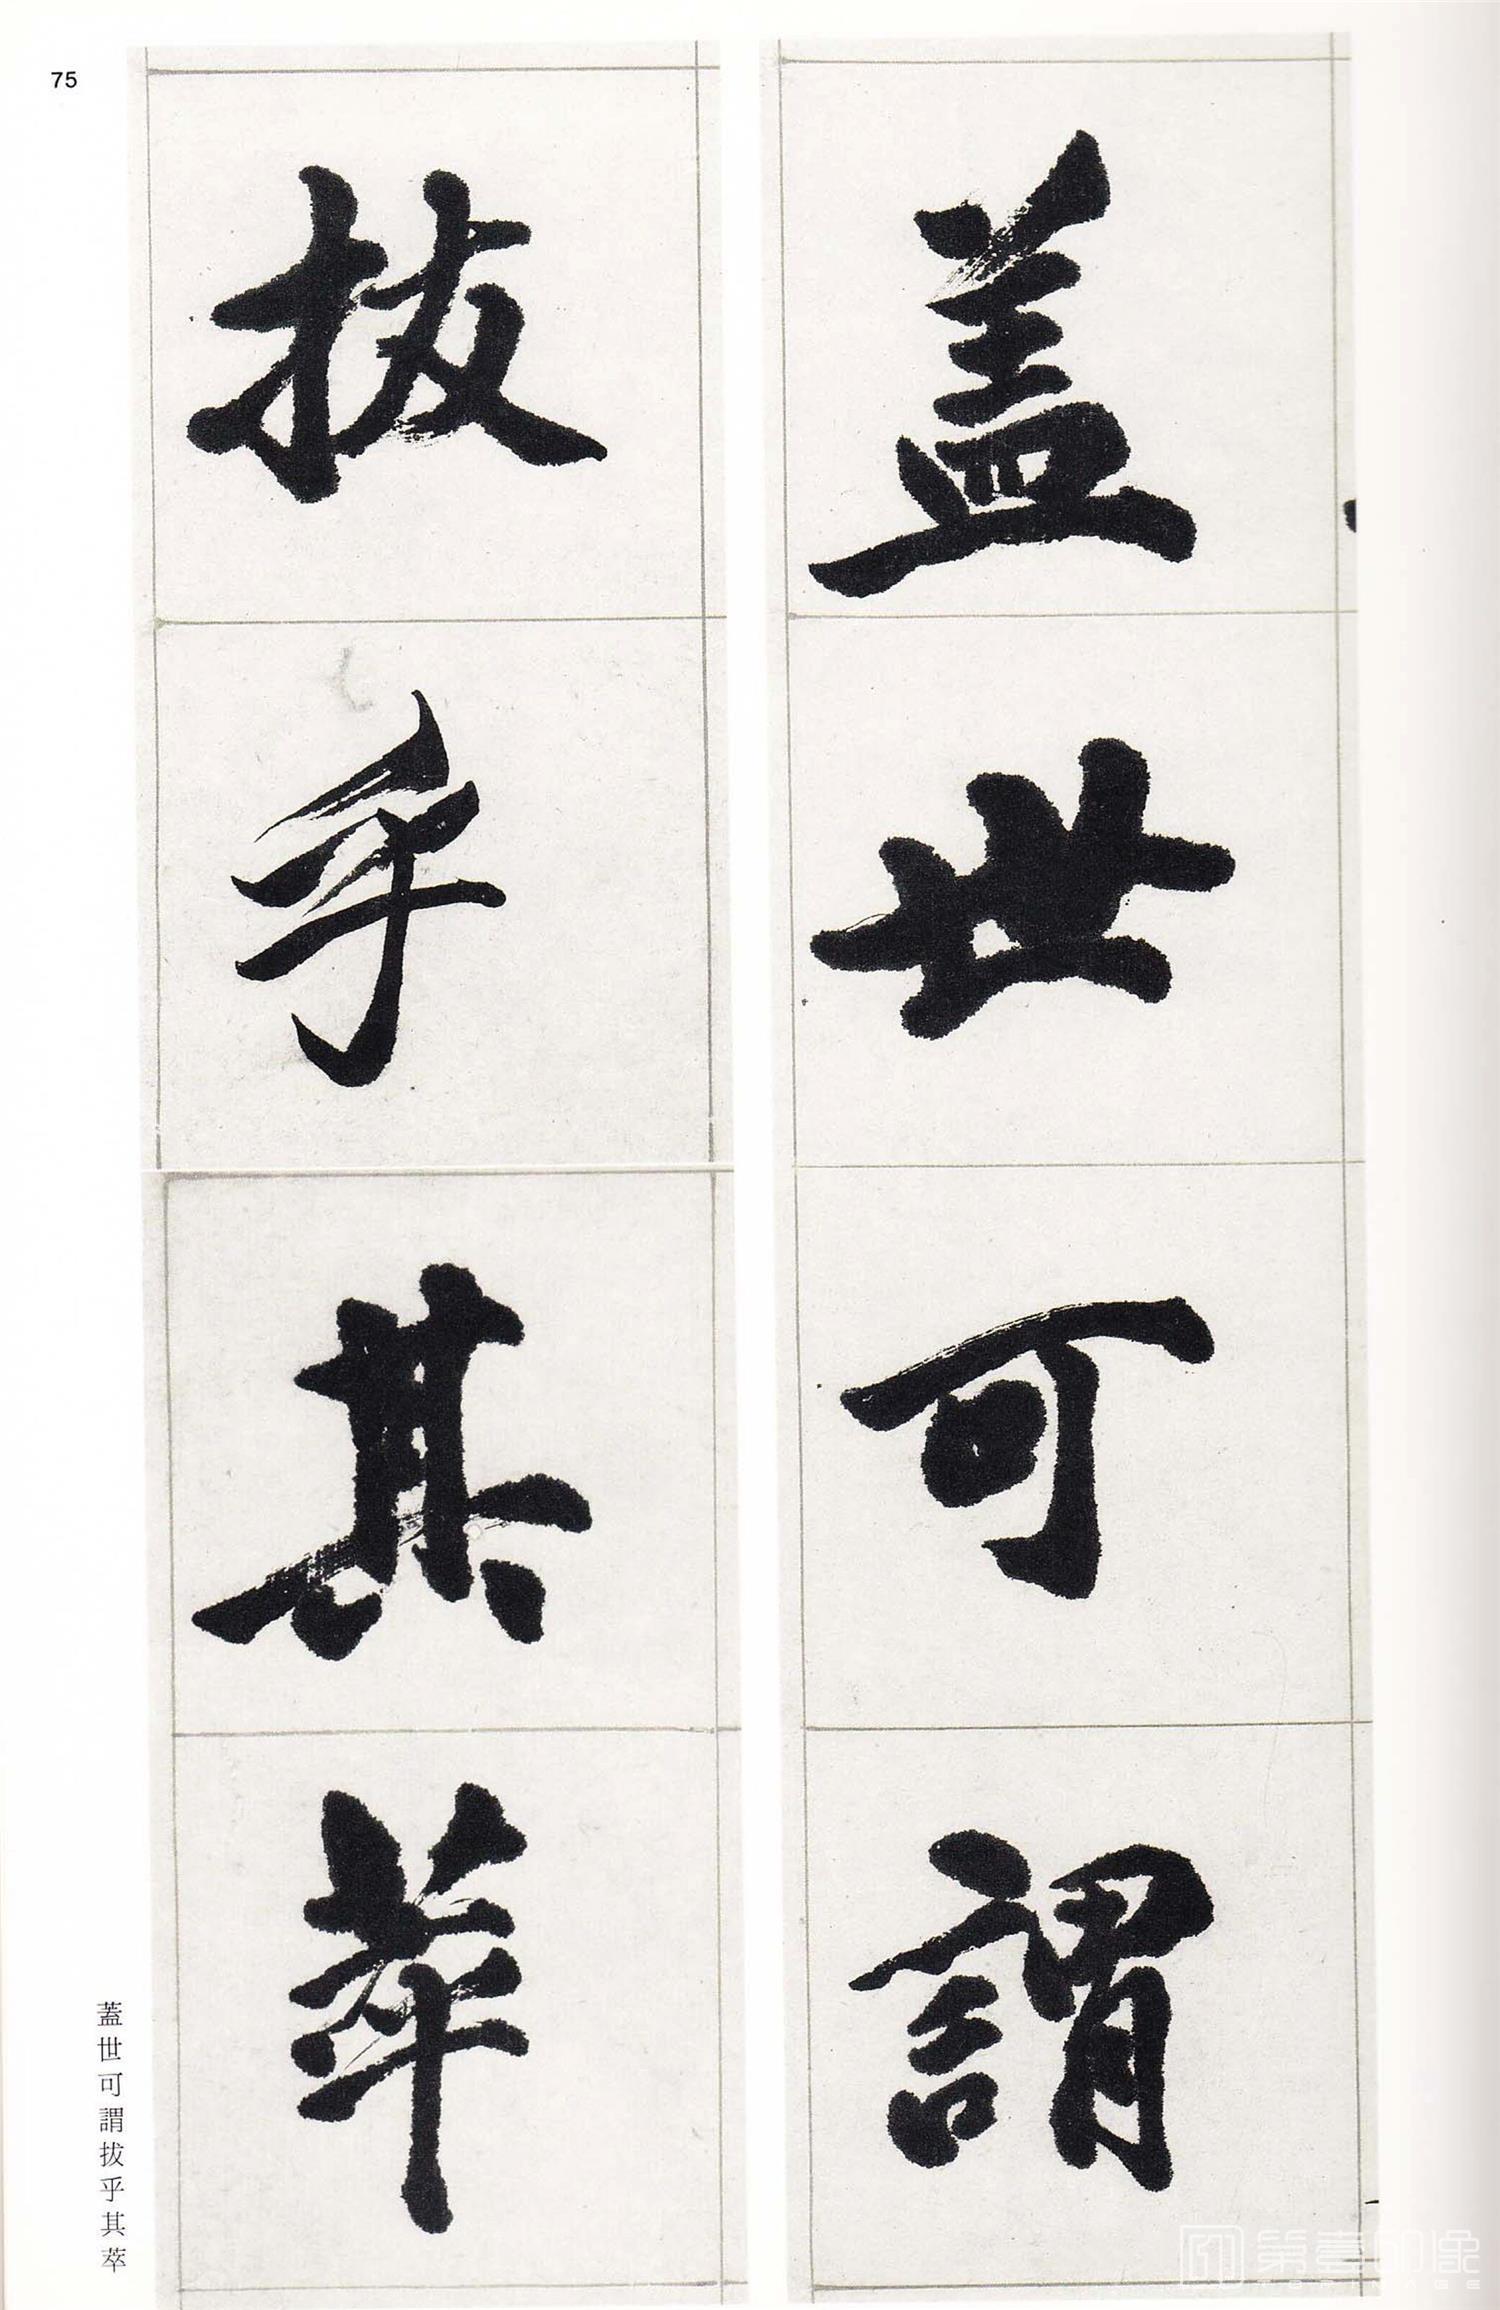 75
盖世可謂
拔乎其萃
蓋世可謂拔乎其萃
第壹印像